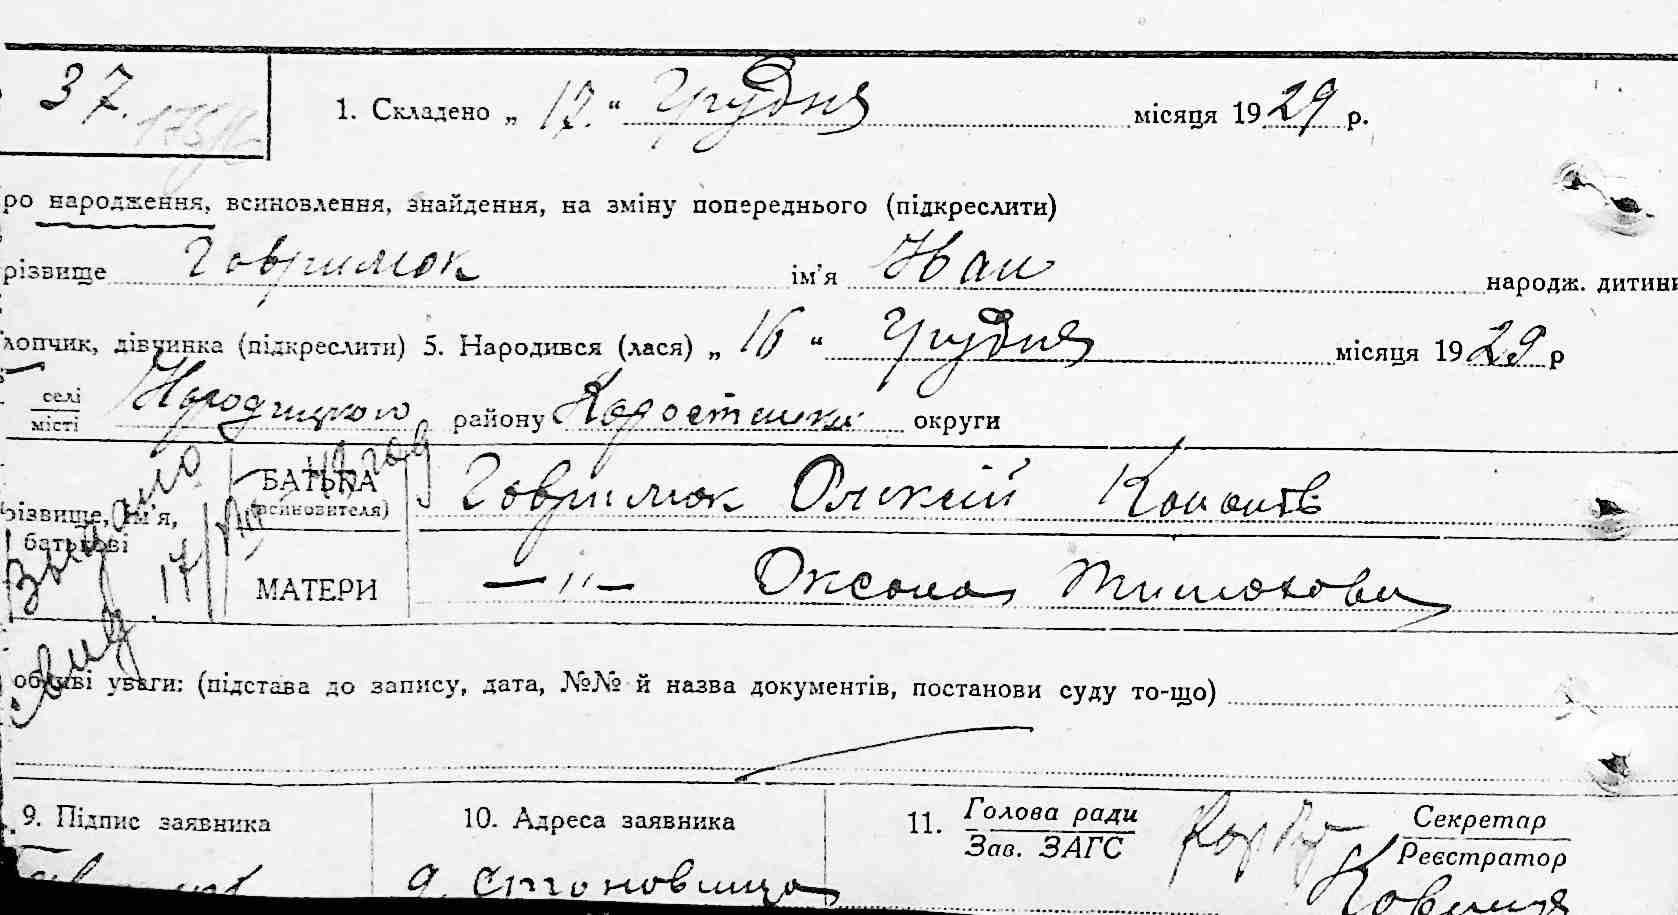 37.
1. Складено „ 17. “ Грудня місяця 1929 р.
ро народження, всиновлення, знайдення, на зміну попереднього (підкреслити)
різвище Гаврилюк ім’я Иван народж. дитини
лопчик, дівчинка (підкреслити) 5. Народився (лася) „ 16 “ Грудня місяця 1929 р
селі
місті Народицького району Коростенськ округи
БАТЬКА
(всиновителя) Гаврилюк Олексій
різвище, ім’я,
батькові
МАТЕРИ —〃— Оксана
обливі уваги: (підстава до запису, дата, №№ й назва документів, постанови суду то-що)
9. Підпис заявника 10. Адреса заявника 11. Голова ради
Зав. ЗАГС Секретар
Реєстратор